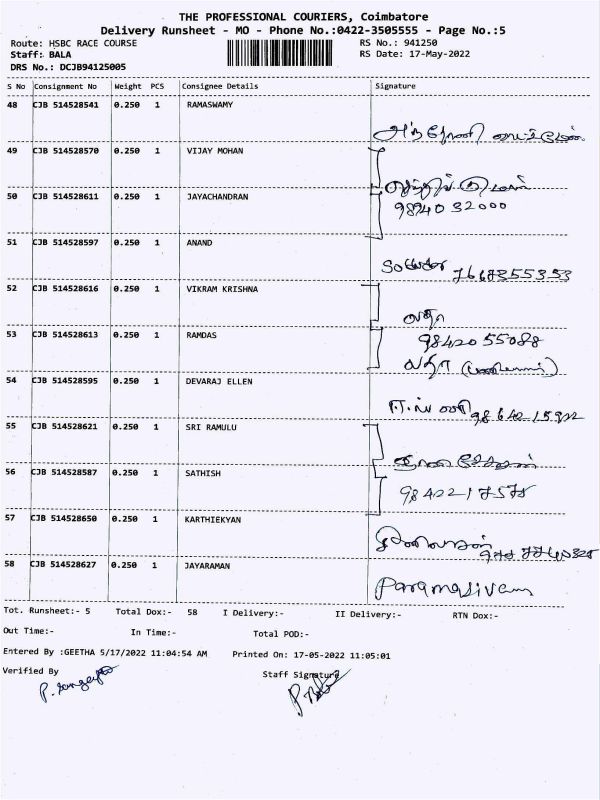 THE PROFESSIONAL COURIERS, Coimbatore
Delivery Runsheet - MO - Phone No.:0422-3505555 - Page No.:5
Route: HSBC RACE COURSE RS No.: 941250
Staff: BALA RS Date: 17-May-2022
DRS No.: DCJB94125005
S No Consignment No Weight PCS Consignee Details Signature
48 CJB 514528541 0.250 1 RAMASWAMY
49 CJB 514528570 0.250 1 VIJAY MOHAN
50 CJB 514528611 0.250 1 JAYACHANDRAN
98940 32000
51 CJB 514528597 0.250 1 ANAND
52 CJB 514528616 0.250 1 VIKRAM KRISHNA
53 CJB 514528613 0.250 1 RAMDAS
98420 55088
54 CJB 514528595 0.250 1 DEVARAJ ELLEN
55 CJB 514528621 0.250 1 SRI RAMULU
56 CJB 514528587 0.250 1 SATHISH
57 CJB 514528650 0.250 1 KARTHIEKYAN
58 CJB 514528627 0.250 1 JAYARAMAN
Paramasivam
Tot. Runsheet:- 5 Total Dox:- 58 I Delivery:- II Delivery:- RTN Dox:-
Out Time:- In Time:- Total POD:-
Entered By :GEETHA 5/17/2022 11:04:54 AM Printed On: 17-05-2022 11:05:01
Verified By Staff Signature